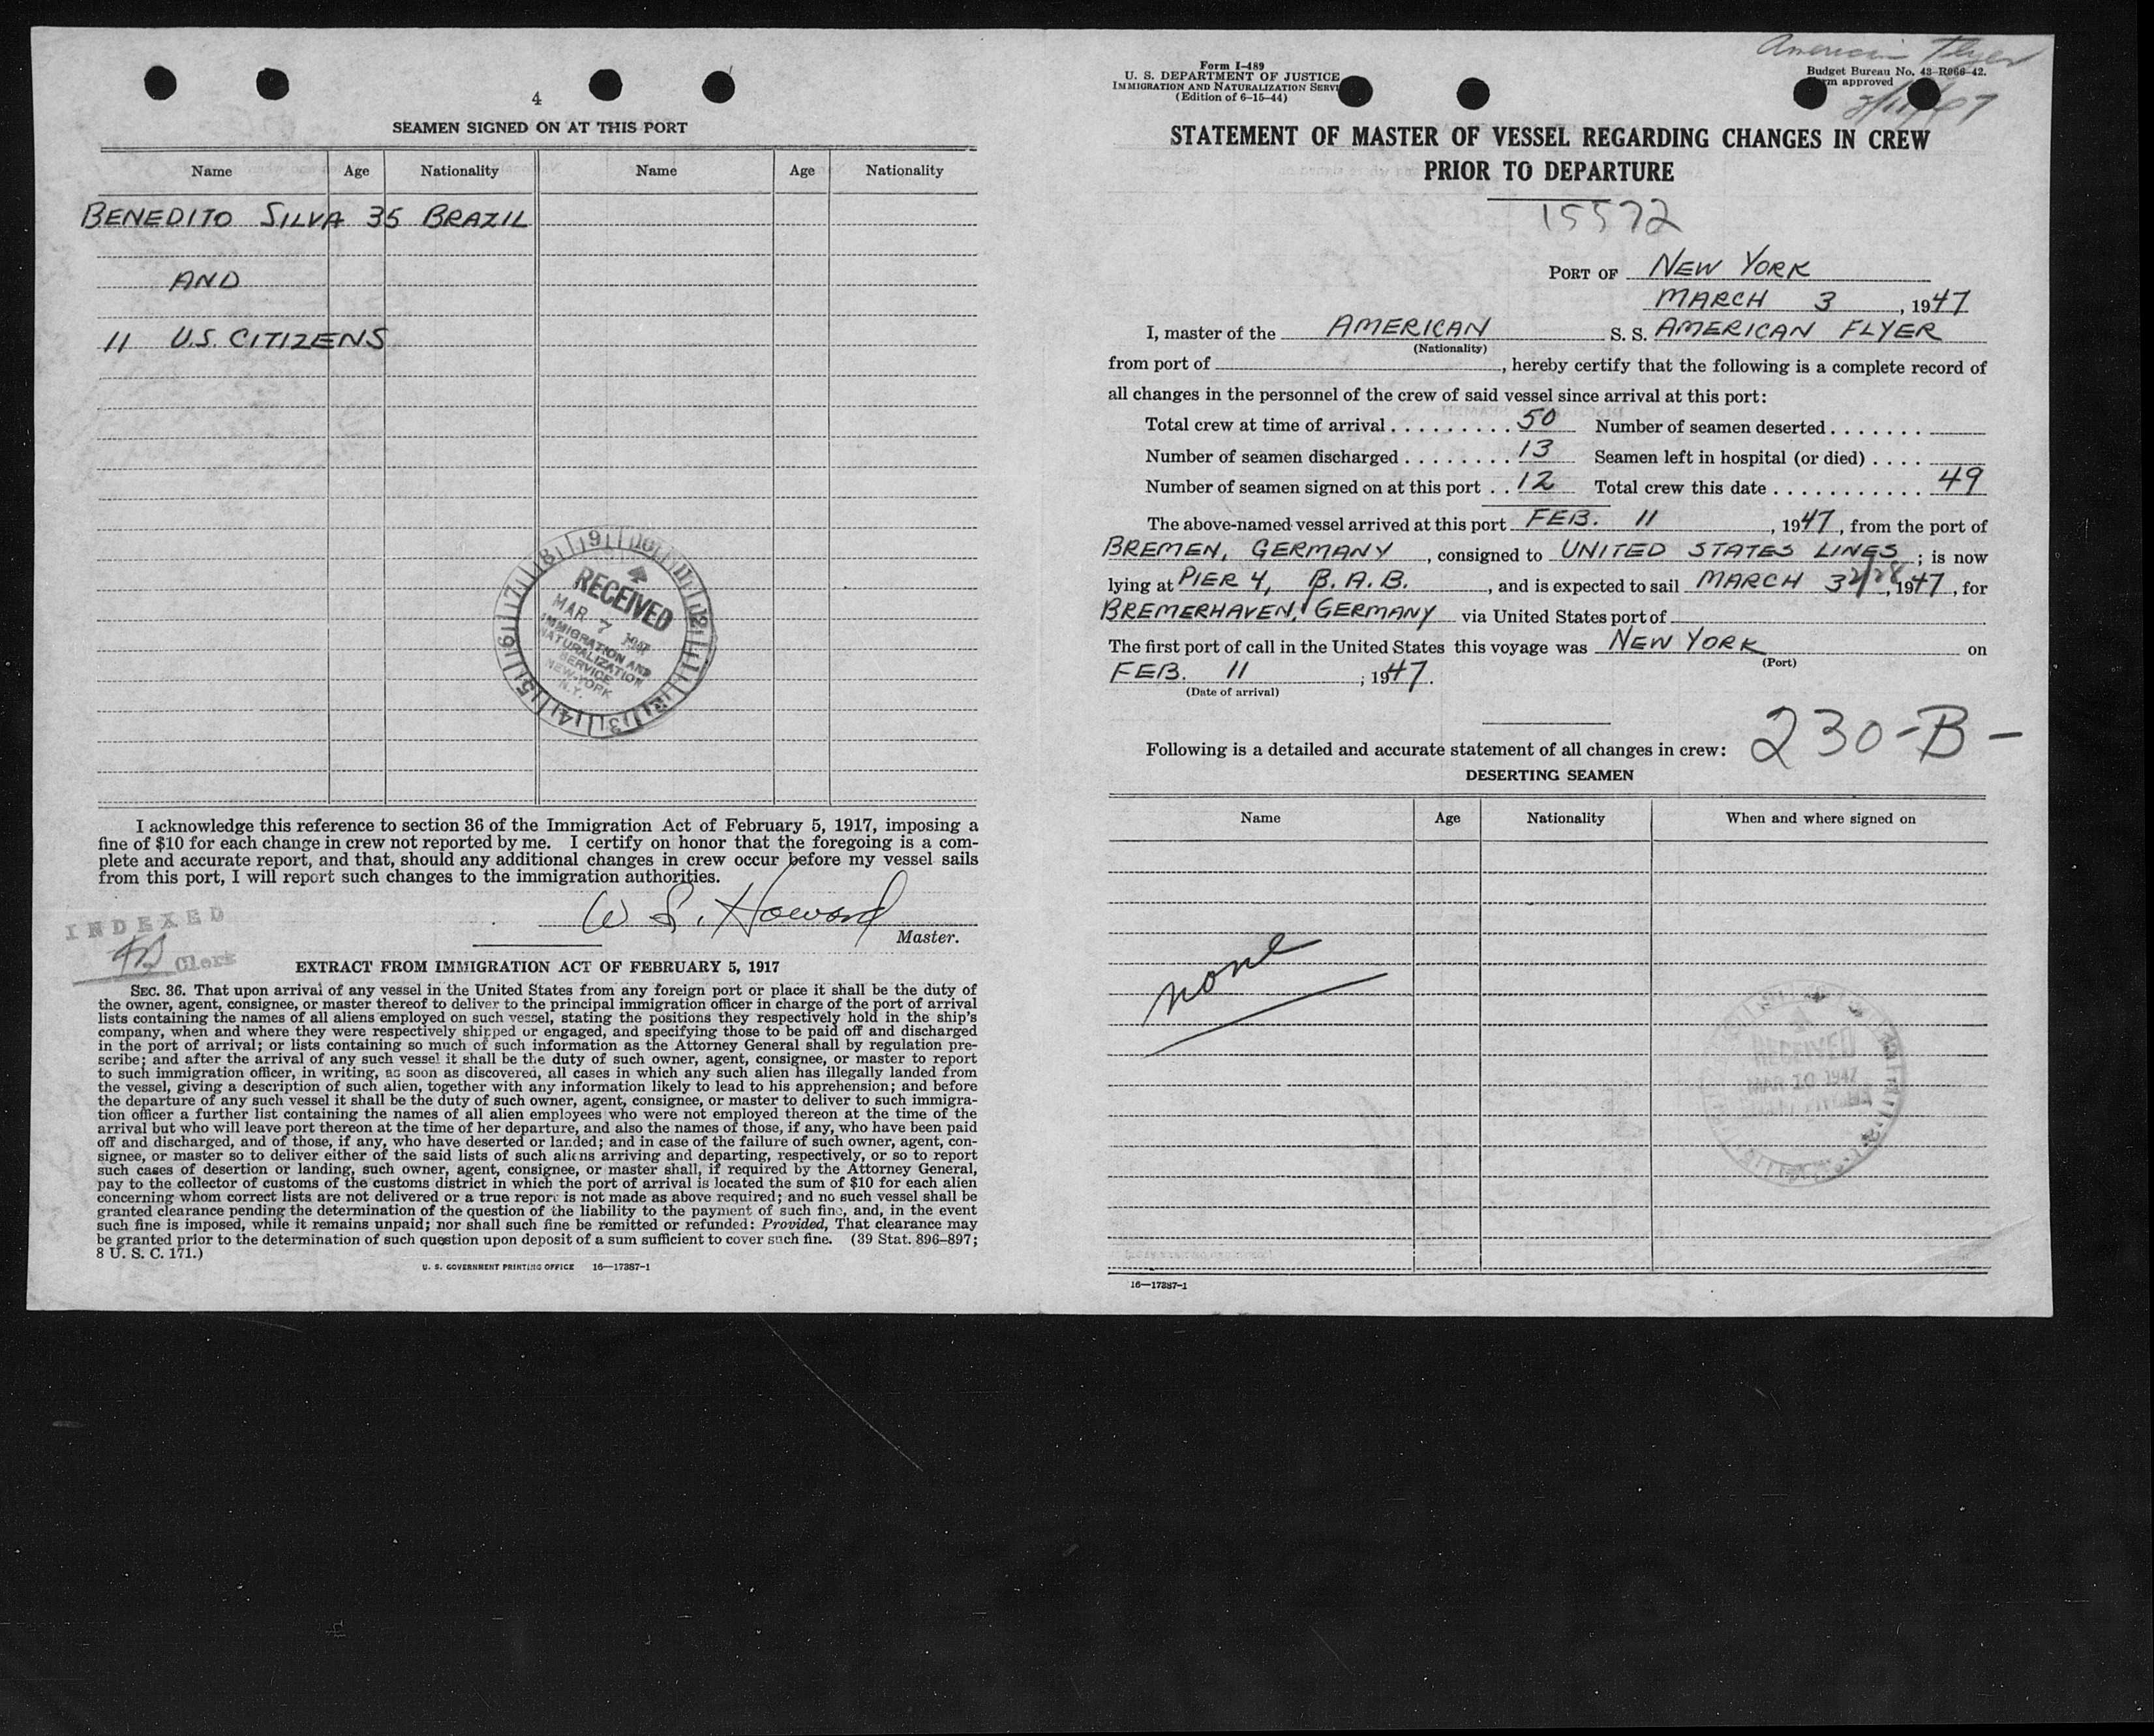 4
SEAMEN SIGNED ON AT THIS PORT
Name Age Nationality Name Age Nationality
BENEDITO SILVA 35 BRAZIL
AND
11 U.S. CITIZENS
RECEIVED
MAR 7 1947
IMMIGRATION AND
NATURALIZATION
SERVICE
NEW-YORK
N.Y.
I acknowledge this reference to section 36 of the Immigration Act of February 5, 1917, imposing a
fine of $10 for each change in crew not reported by me. I certify on honor that the foregoing is a com-
plete and accurate report, and that, should any additional changes in crew occur before my vessel sails
from this port, I will report such changes to the immigration authorities.
W S. Howard
Master.
INDEXED
Clerk
EXTRACT FROM IMMIGRATION ACT OF FEBRUARY 5, 1917
SEC. 36. That upon arrival of any vessel in the United States from any foreign port or place it shall be the duty of
the owner, agent, consignee, or master thereof to deliver to the principal immigration officer in charge of the port of arrival
lists containing the names of all aliens employed on such vessel, stating the positions they respectively hold in the ship's
company, when and where they were respectively shipped or engaged, and specifying those to be paid off and discharged
in the port of arrival; or lists containing so much of such information as the Attorney General shall by regulation pre-
scribe; and after the arrival of any such vessel it shall be the duty of such owner, agent, consignee, or master to report
to such immigration officer, in writing, as soon as discovered, all cases in which any such alien has illegally landed from
the vessel, giving a description of such alien, together with any information likely to lead to his apprehension; and before
the departure of any such vessel it shall be the duty of such owner, agent, consignee, or master to deliver to such immigra-
tion officer a further list containing the names of all alien employees who were not employed thereon at the time of the
arrival but who will leave port thereon at the time of her departure, and also the names of those, if any, who have been paid
off and discharged, and of those, if any, who have deserted or landed; and in case of the failure of such owner, agent, con-
signee, or master so to deliver either of the said lists of such aliens arriving and departing, respectively, or so to report
such cases of desertion or landing, such owner, agent, consignee, or master shall, if required by the Attorney General,
pay to the collector of customs of the customs district in which the port of arrival is located the sum of $10 for each alien
concerning whom correct lists are not delivered or a true report is not made as above required; and no such vessel shall be
granted clearance pending the determination of the question of the liability to the payment of such fine, and, in the event
such fine is imposed, while it remains unpaid; nor shall such fine be remitted or refunded: Provided, That clearance may
be granted prior to the determination of such question upon deposit of a sum sufficient to cover such fine. (39 Stat. 896–897;
8 U. S. C. 171.)
U. S. GOVERNMENT PRINTING OFFICE 16—17387-1
American Flyer
Form I-489
U. S. DEPARTMENT OF JUSTICE
IMMIGRATION AND NATURALIZATION SERVI
(Edition of 6-15-44)
Budget Bureau No. 43-R066-42.
rm approved
2/11/47
STATEMENT OF MASTER OF VESSEL REGARDING CHANGES IN CREW
PRIOR TO DEPARTURE
15572
PORT OF NEW YORK
MARCH 3, 1947
I, master of the AMERICAN S. S. AMERICAN FLYER
(Nationality)
from port of , hereby certify that the following is a complete record of
all changes in the personnel of the crew of said vessel since arrival at this port:
Total crew at time of arrival . . . . . . . . . 50 Number of seamen deserted . . . . . . .
Number of seamen discharged . . . . . . . . 13 Seamen left in hospital (or died) . . . .
Number of seamen signed on at this port . . 12 Total crew this date . . . . . . . . . . . 49
The above-named vessel arrived at this port FEB. 11, 1947, from the port of
BREMEN, GERMANY, consigned to UNITED STATES LINES; is now
lying at PIER 4, B. A. B., and is expected to sail MARCH 3 2/28, 1947, for
BREMERHAVEN, GERMANY via United States port of
The first port of call in the United States this voyage was NEW YORK on
(Port)
FEB. 11; 1947.
(Date of arrival)
230-B-
Following is a detailed and accurate statement of all changes in crew:
DESERTING SEAMEN
Name Age Nationality When and where signed on
none
RECEIVED
MAR 10 1947
16—17387-1